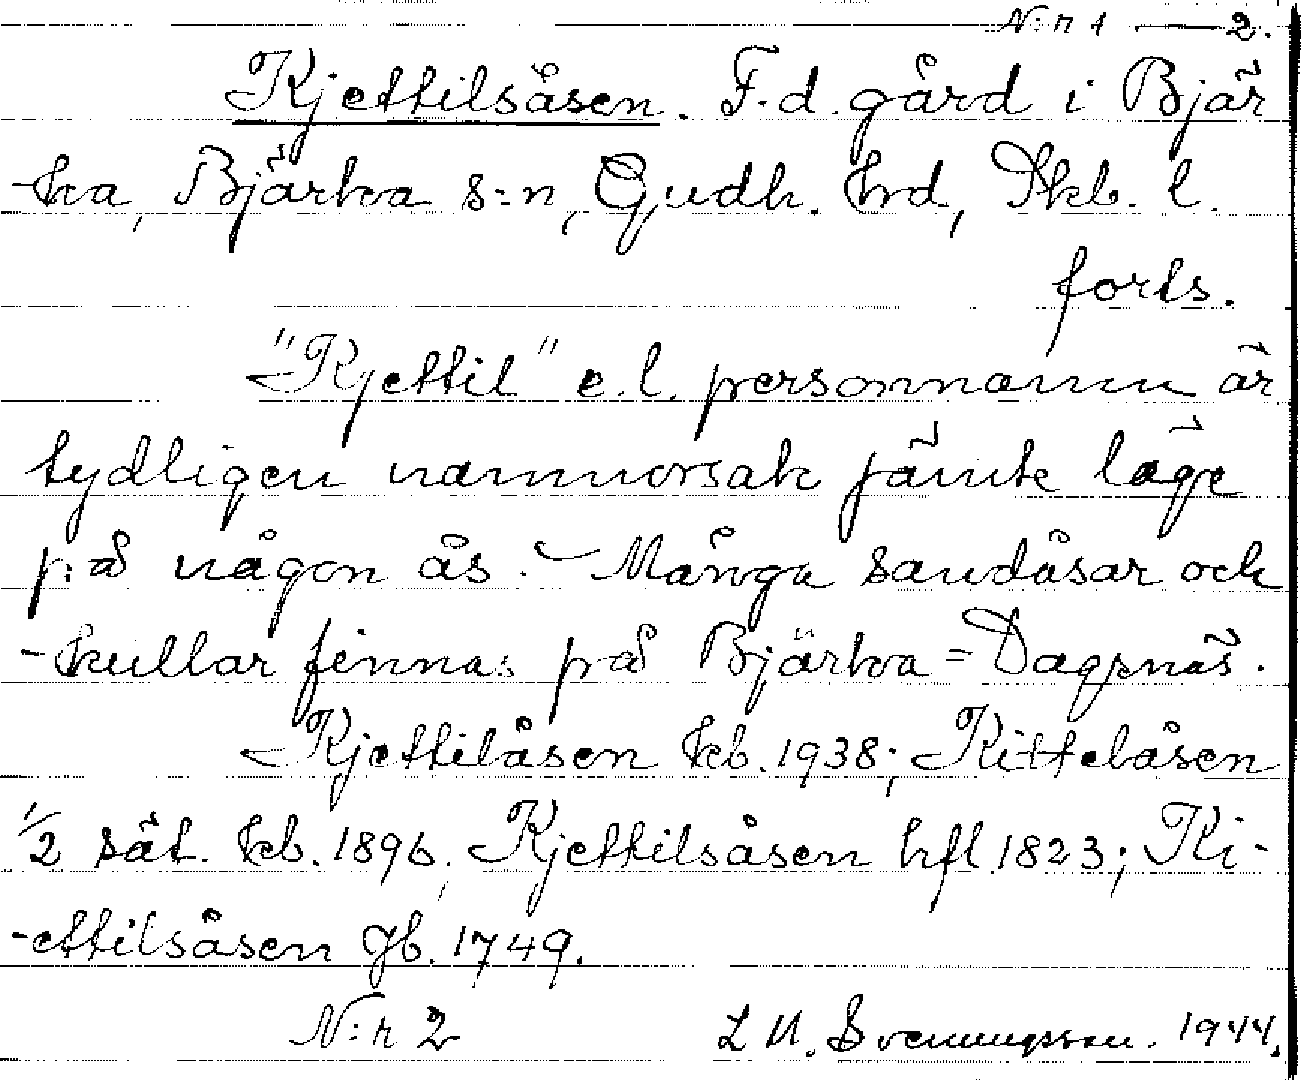 N:r 1 — 2.
Kjettilsåsen. F.d. gård i Bjär
-ka, Bjärka s:n, Gudh. hrd, Skb. l.
forts.
"Kjettil" e.l. personnamn är
tydligen namnorsak jämte läge
på någon ås. - Många sandåsar och
-kullar finnas på Bjärka = Dagsnäs.
Kjettilåsen kb. 1938; Kittelåsen
1/2 sät. kb. 1896; Kjettilsåsen hfl 1823; Ki-
-ettilsåsen Jb. 1749.
N:r 2 L M. Svenungsson. 1944.